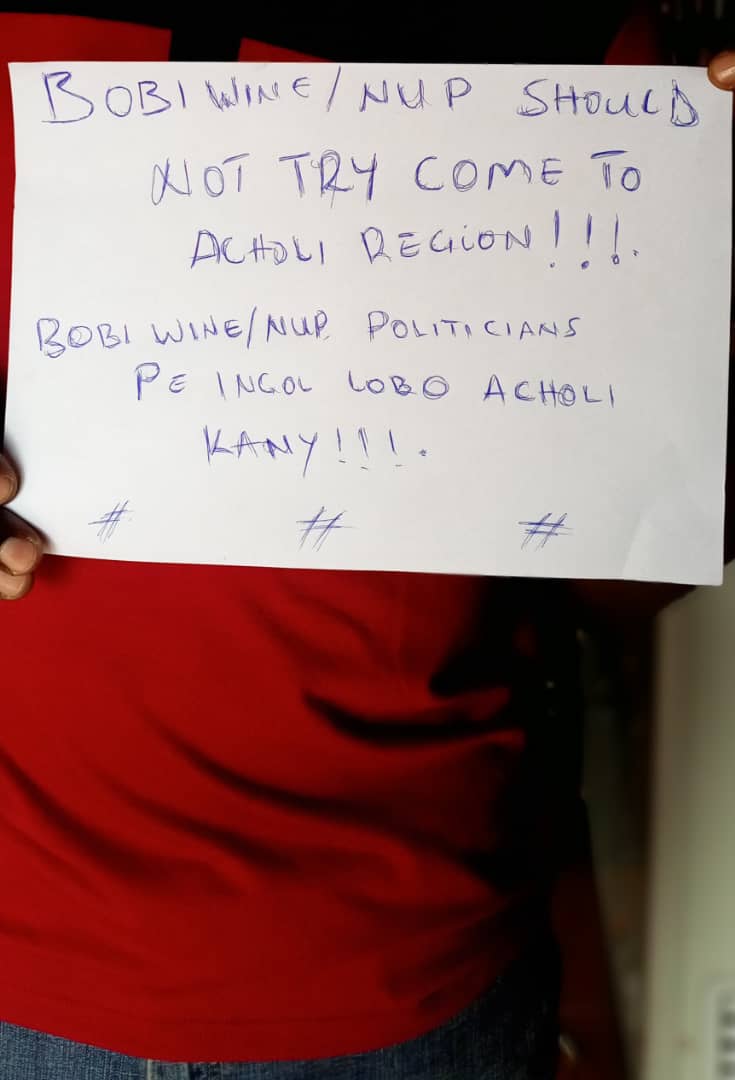 BOBI WINE/NUP SHOULD
NOT TRY COME TO
ACHOLI REGION!!!.
BOBI WINE/NUP POLITICIANS
PE INGOL LOBO ACHOLI
KANY!!!.
# # #